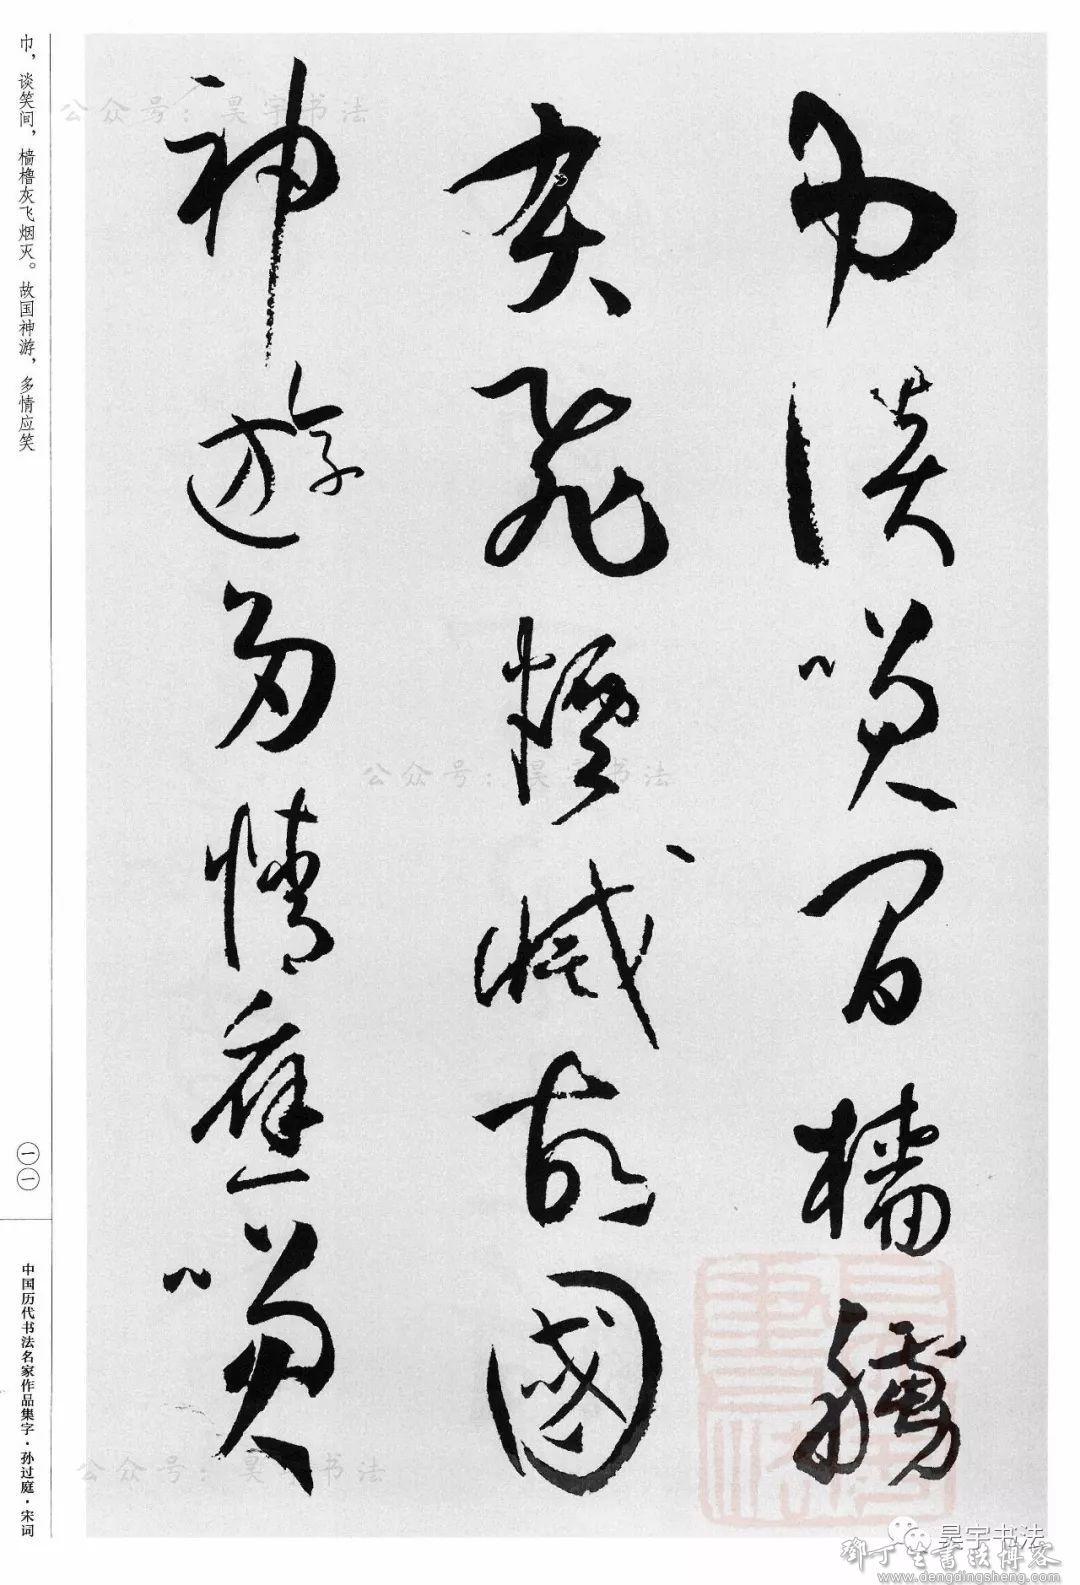 巾谈笑间樯橹
灰飞烟灭故国
神游多情应笑
巾，谈笑间，樯橹灰飞烟灭。故国神游，多情应笑
一一
中国历代书法名家作品集字·孙过庭·宋词
公众号：昊宇书法
公众号：昊宇书法
公众号：昊宇书法
昊宇书法
鄧丁生書法博客
www.dengdingsheng.com